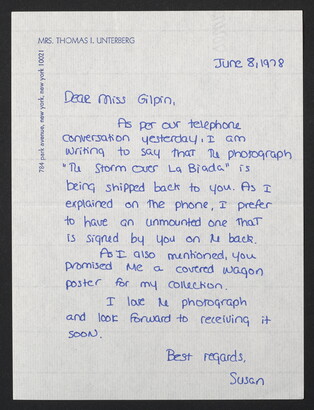 MRS. THOMAS I. UNTERBERG
784 park avenue, new york, new york 10021
June 8, 1978
Dear Miss Gilpin,
As per our telephone
conversation yesterday, I am
writing to say that the photograph
"The Storm over La Bjada" is
being shipped back to you. As I
explained on the phone, I prefer
to have an unmounted one that
is signed by you on the back.
As I also mentioned, you
promised me a covered wagon
poster for my collection.
I love the photograph
and look forward to receiving it
soon.
Best regards,
Susan